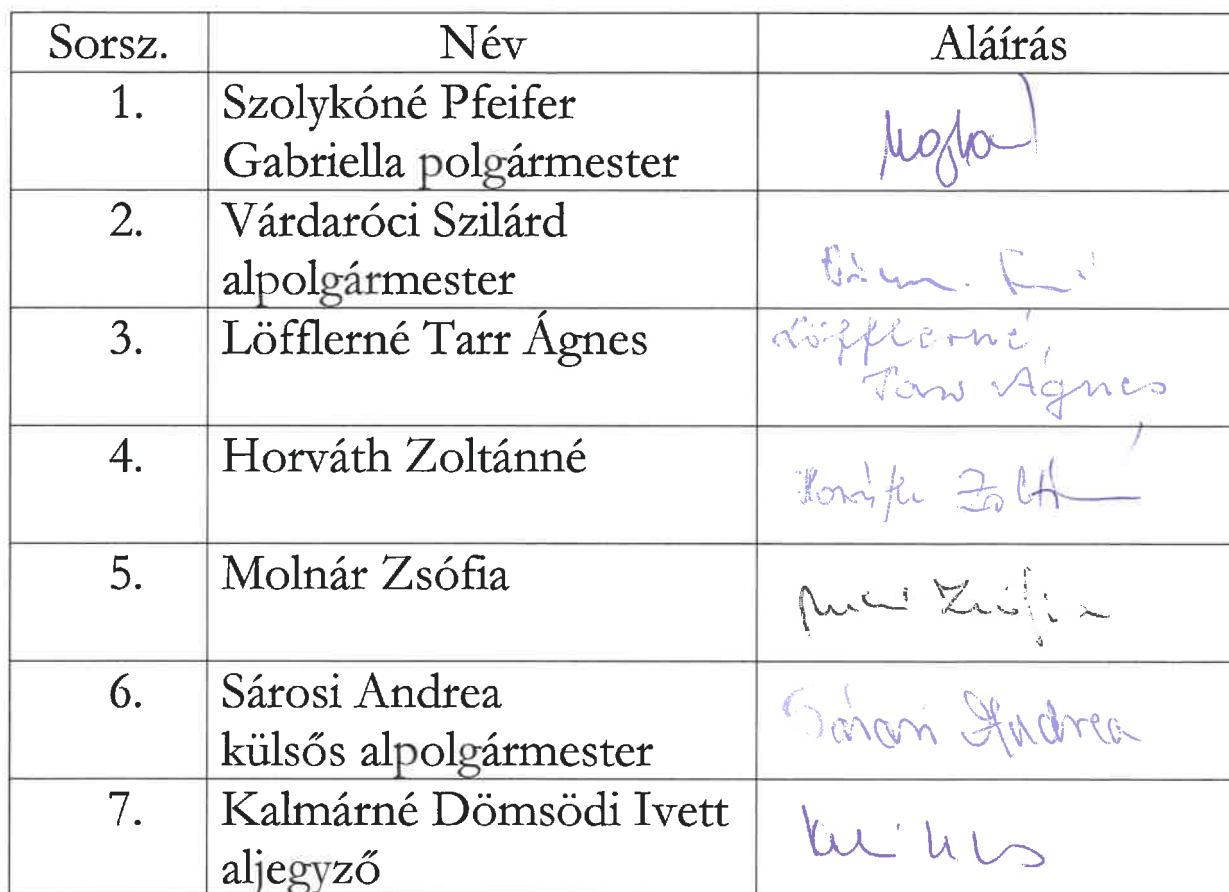 Sorsz. Név Aláírás
1. Szolykóné Pfeifer
Gabriella polgármester
2. Várdaróci Szilárd
alpolgármester
3. Löfflerné Tarr Ágnes Löfflerné
Tarr Ágnes
4. Horváth Zoltánné Horváth
5. Molnár Zsófia Zsófia
6. Sárosi Andrea Sárosi Andrea
külsős alpolgármester
7. Kalmárné Dömsödi Ivett
aljegyző